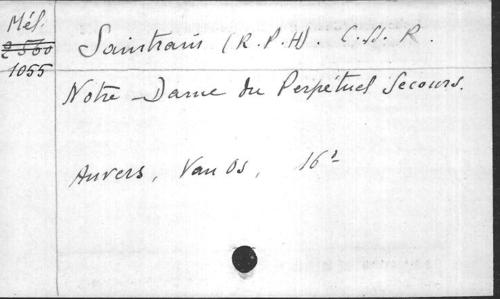 Mél.
2560
1055
Saintrain (R.P.H). C. SS. R.
Notre-Dame du Perpétuel Secours.
Anvers, Van Os, 16º